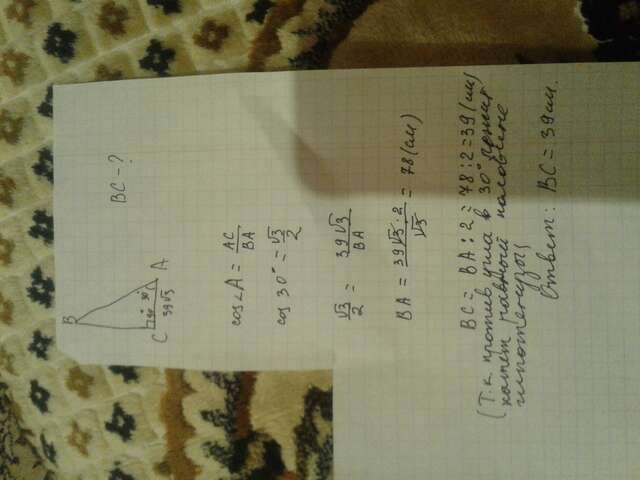 BC - ?
B
C 90° 30° A
39√3
cos∠A = AC/BA
cos 30° = √3/2
√3/2 = 39√3/BA
BA = 39√3·2/√3 = 78 (см)
BC = BA : 2 = 78 : 2 = 39 (см)
(Т.к против угла в 30° лежит
катет равный половине
гипотенузы)
Ответ: BC = 39 см.